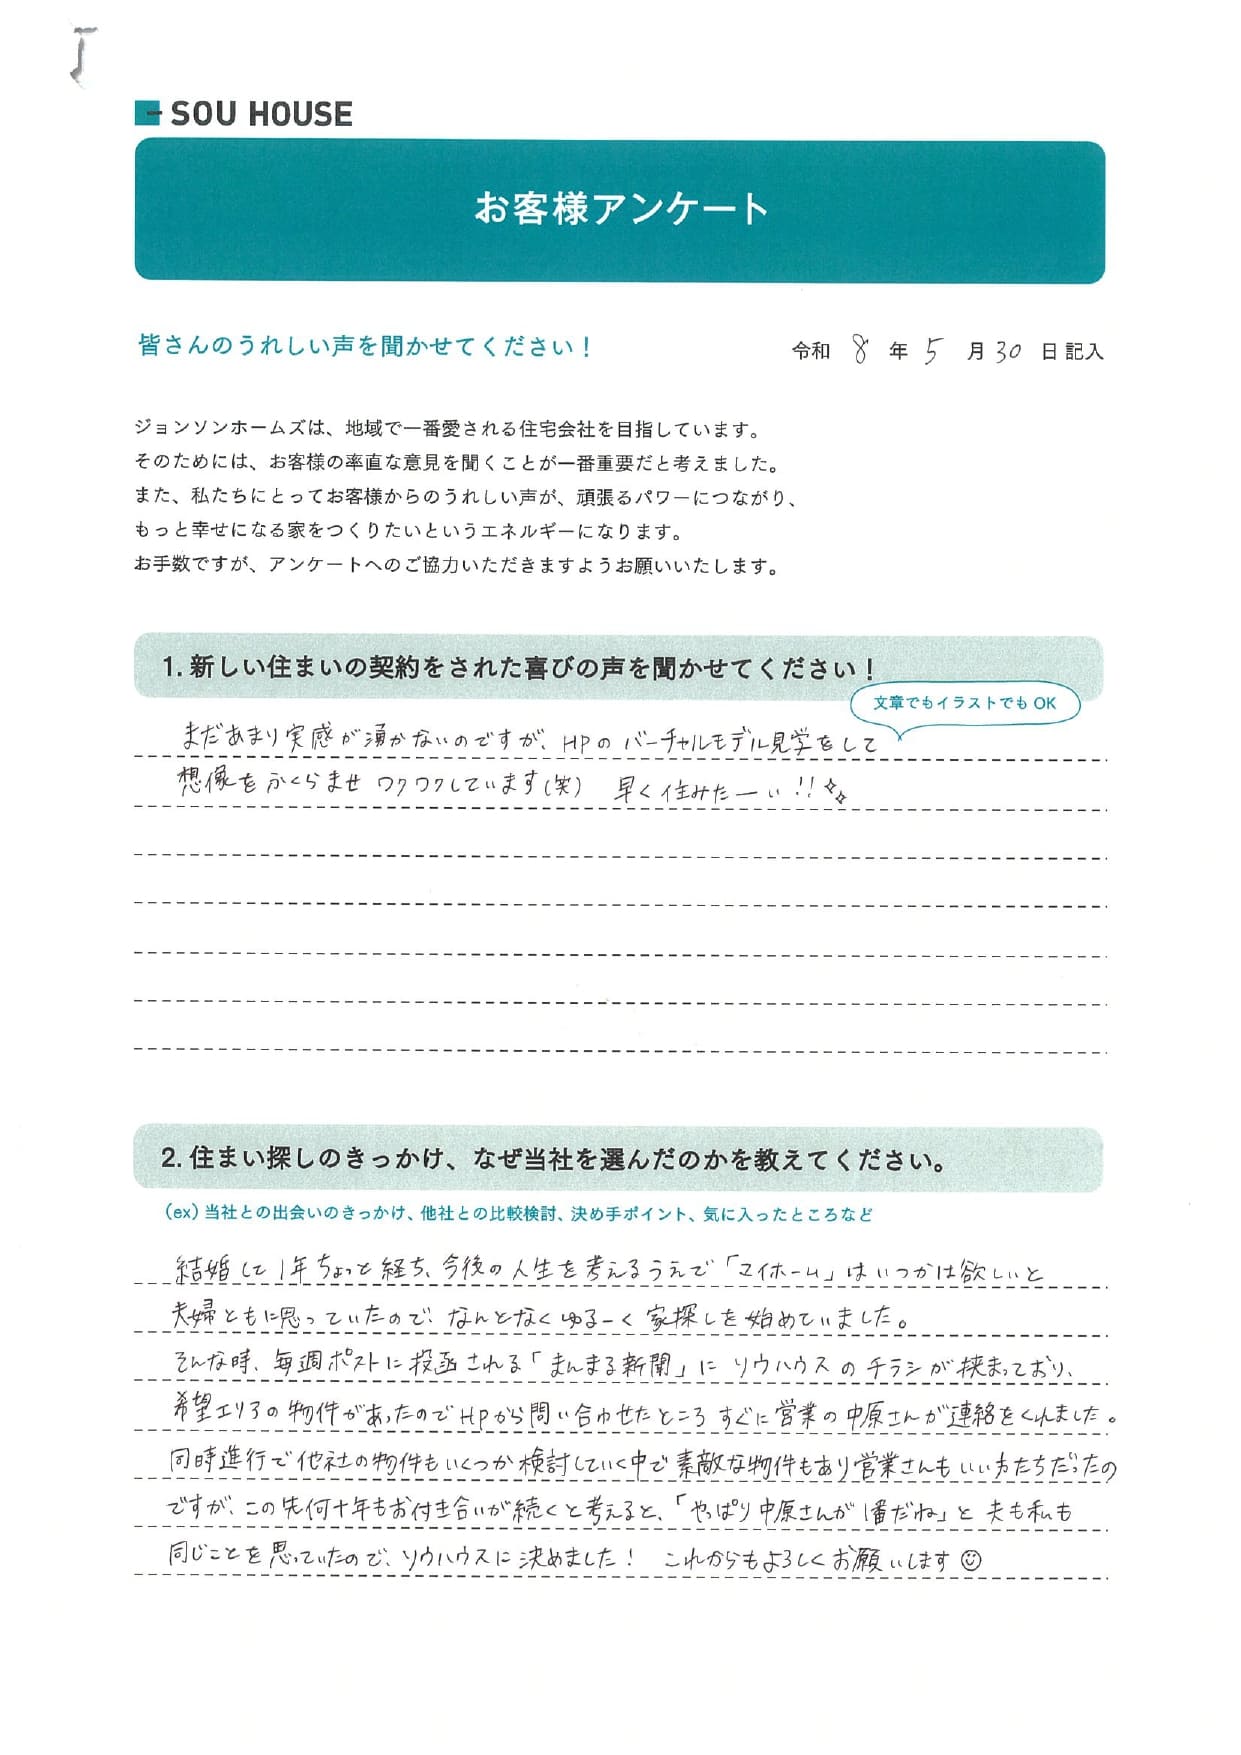 SOU HOUSE
お客様アンケート
皆さんのうれしい声を聞かせてください！
令和 8 年 5 月 30 日記入
ジョンソンホームズは、地域で一番愛される住宅会社を目指しています。
そのためには、お客様の率直な意見を聞くことが一番重要だと考えました。
また、私たちにとってお客様からのうれしい声が、頑張るパワーにつながり、
もっと幸せになる家をつくりたいというエネルギーになります。
お手数ですが、アンケートへのご協力いただきますようお願いいたします。
1. 新しい住まいの契約をされた喜びの声を聞かせてください！
文章でもイラストでも OK
まだあまり実感が湧かないのですが、HPのバーチャルモデル見学をして
想像をふくらませワクワクしています(笑) 早く住みたーい!!
2. 住まい探しのきっかけ、なぜ当社を選んだのかを教えてください。
（ex）当社との出会いのきっかけ、他社との比較検討、決め手ポイント、気に入ったところなど
結婚して1年ちょっと経ち、今後の人生を考えるうえで「マイホーム」はいつかは欲しいと
夫婦ともに思っていたので、なんとなくゆるーく家探しを始めていました。
そんな時、毎週ポストに投函される「まんまる新聞」にソウハウスのチラシが挟まっており、
希望エリアの物件があったのでHPから問い合わせたところすぐに営業の中原さんが連絡をくれました。
同時進行で他社の物件もいくつか検討していく中で素敵な物件もあり営業さんもいい方たちだったの
ですが、この先何十年もお付き合いが続くと考えると、「やっぱり中原さんが1番だね」と夫も私も
同じことを思っていたので、ソウハウスに決めました！ これからもよろしくお願いします☺